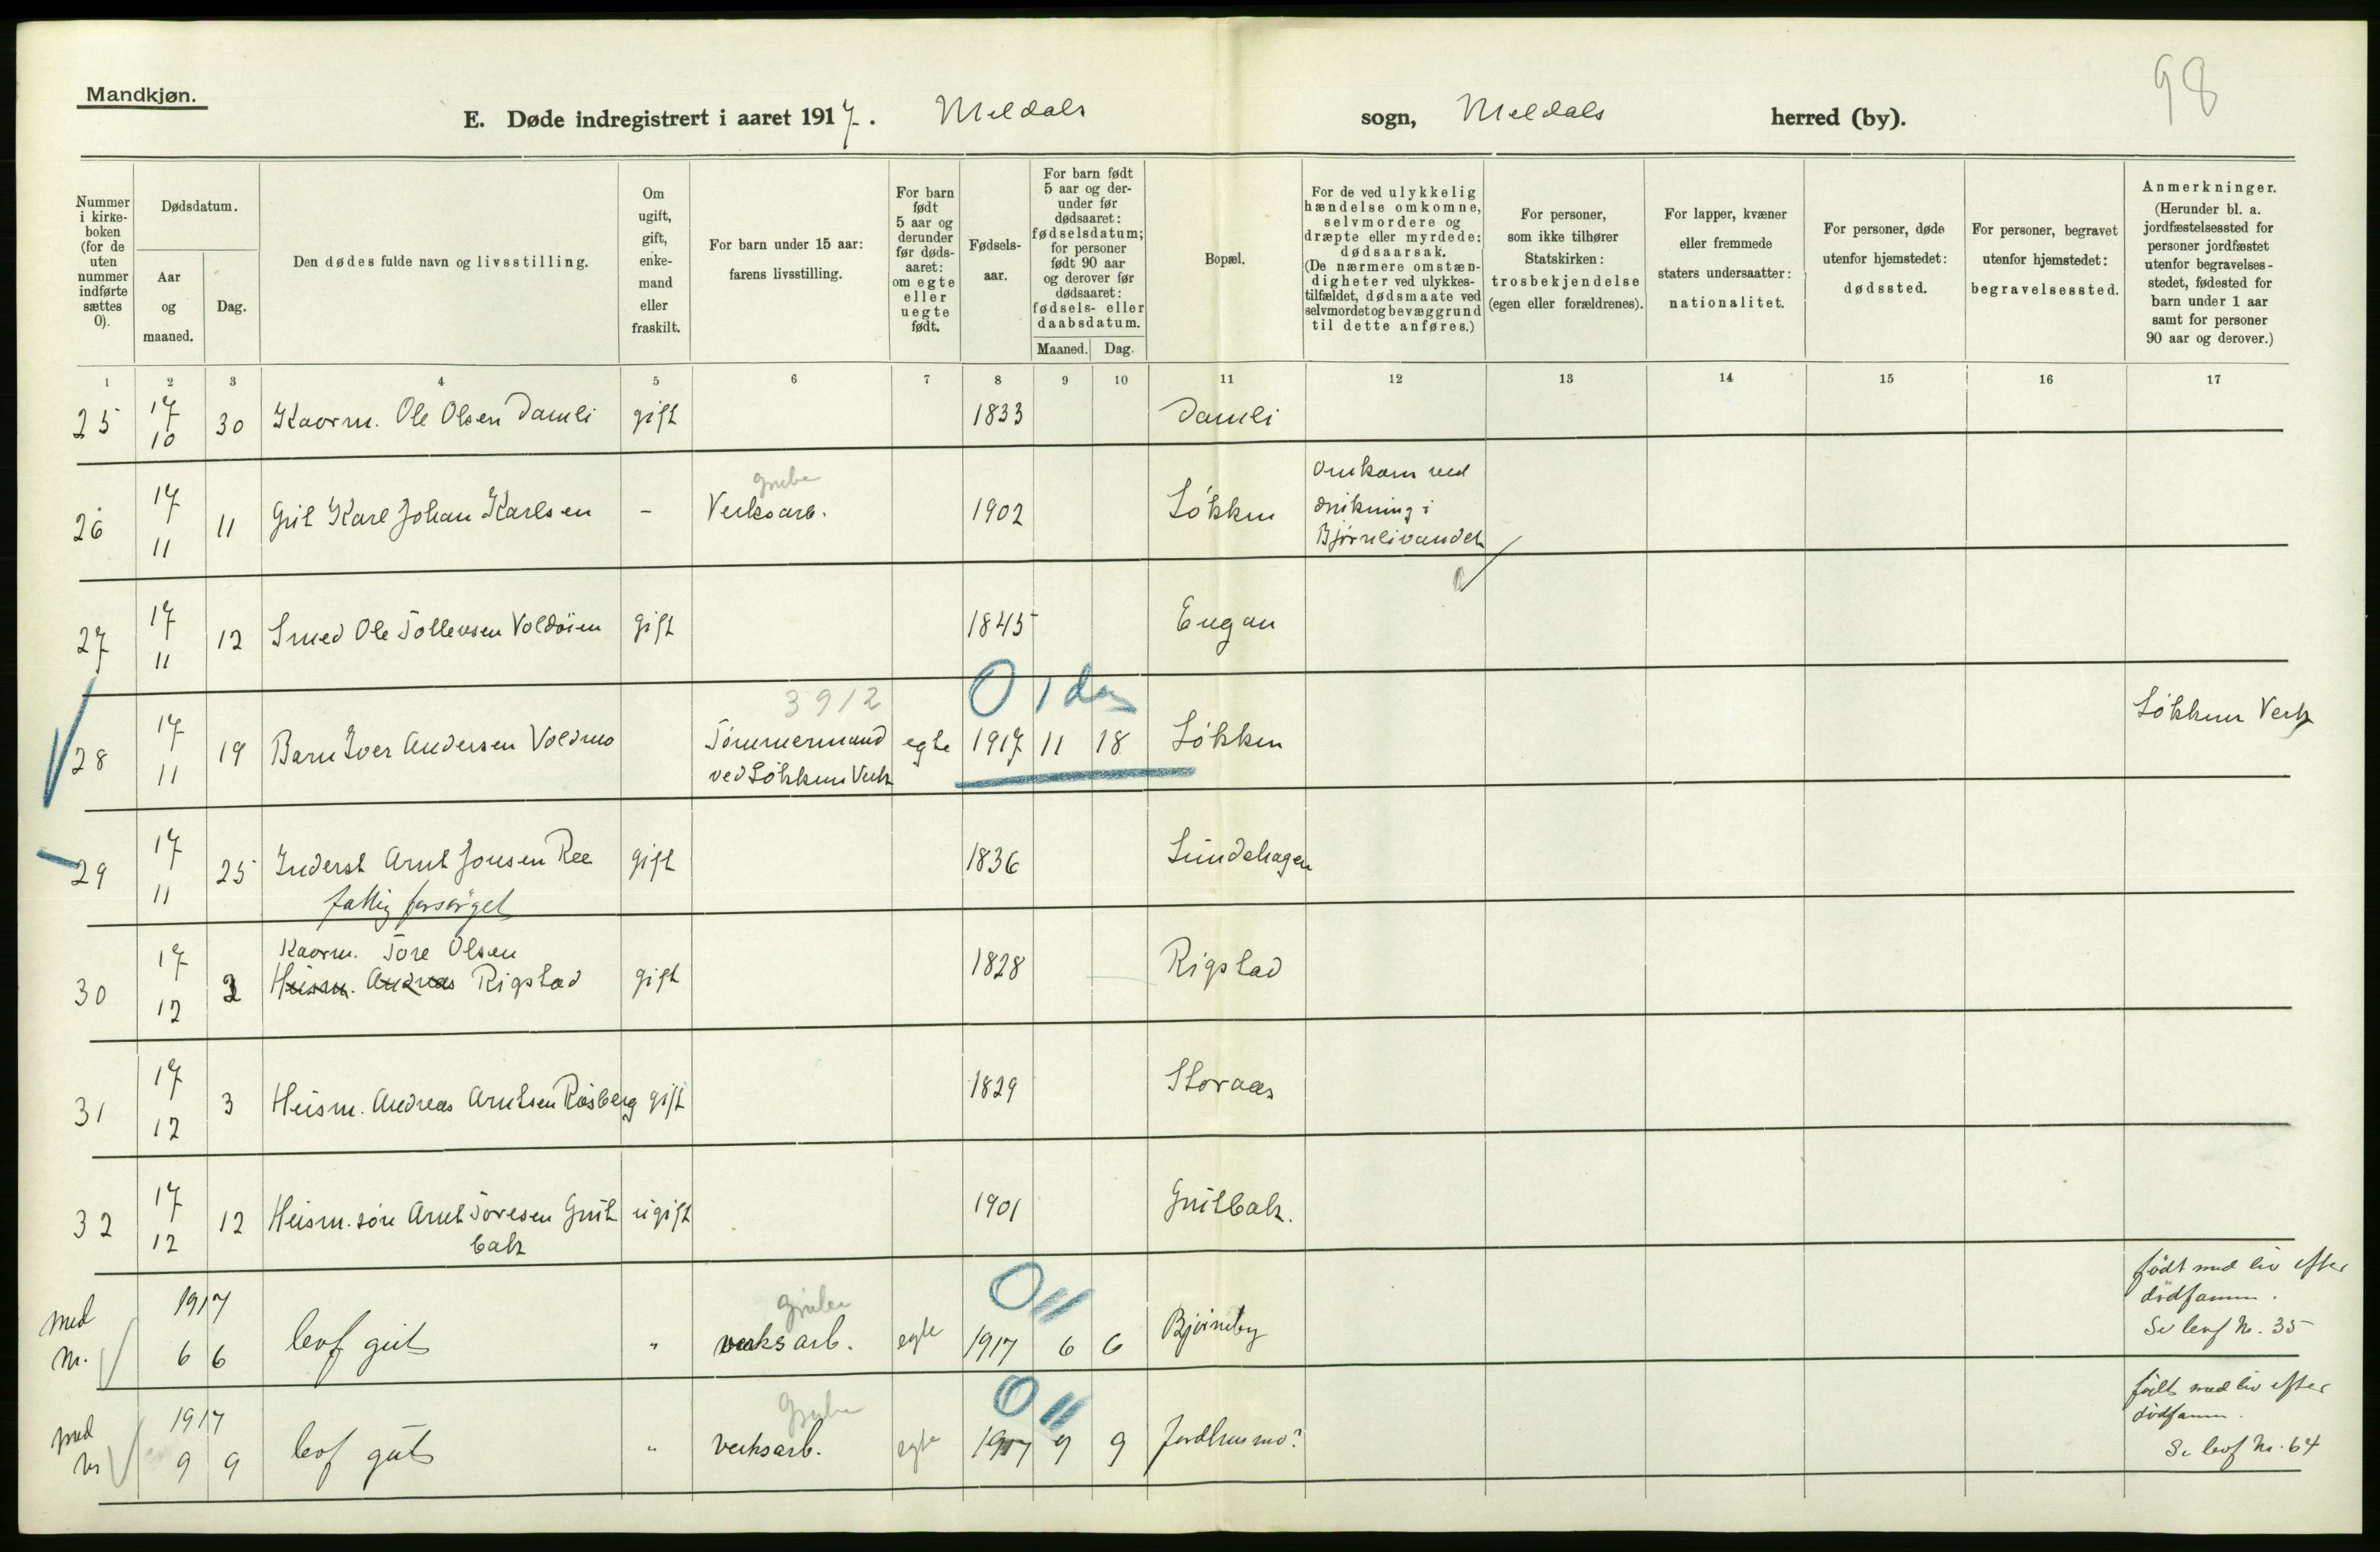 98
Mandkjøn.
E. Døde indregistrert i aaret 1917. Meldals sogn, Meldals herred (by).
Nummer i kirke-boken (for de uten nummer indførte sættes 0).
Dødsdatum.
Aar og maaned.
Dag.
Den dødes fulde navn og livsstilling.
Om ugift, gift, enke-mand eller fraskilt.
For barn under 15 aar: farens livsstilling.
For barn født 5 aar og derunder før døds-aaret: om egte eller uegte født.
Fødsels-aar.
For barn født 5 aar og der-under før dødsaaret: fødselsdatum; for personer født 90 aar og derover før dødsaaret: fødsels- eller daabsdatum.
Maaned. Dag.
Bopæl.
For de ved ulykkelig hændelse omkomne, selvmordere og dræpte eller myrdede: dødsaarsak. (De nærmere omstæn-digheter ved ulykkes-tilfældet, dødsmaate ved selvmordet og bevæggrund til dette anføres.)
For personer, som ikke tilhører Statskirken: trosbekjendelse (egen eller forældrenes).
For lapper, kvæner eller fremmede staters undersaatter: nationalitet.
For personer, døde utenfor hjemstedet: dødssted.
For personer, begravet utenfor hjemstedet: begravelsessted.
Anmerkninger. (Herunder bl. a. jordfæstelsessted for personer jordfæstet utenfor begravelses-stedet, fødested for barn under 1 aar samt for personer 90 aar og derover.)
1 2 3 4 5 6 7 8 9 10 11 12 13 14 15 16 17
25 17 10 30 Kaarm. Ole Olsen Damli gift 1833 Damli
26 17 11 11 Gut Karl Johan Karlsen - grube Verksarb. 1902 Løkken Omkom ved
drukning i
Bjørnlivandet
27 17 11 12 Smed Ole Tollevsen Voldøien gift 1845 Engan
3912 0 1 dag
28 17 11 19 Barn Iver Andersen Voldmo Tømmermand egte 1917 11 18 Løkken Løkken Verk
ved Løkken Verk
29 17 11 25 Inderst Arnt Jonsen Ree gift 1836 Lundehagen
fattig forsørget
Kaarm. Tore Olsen
30 17 12 3 Husm. Andreas Rigstad gift 1828 Rigstad
31 17 12 3 Husm. Andreas Arntsen Råsberg gift 1829 Storaas
32 17 12 12 Husm. søn Arnt Toresen Grut ugift 1901 Grutbak.
bak
Grube 0 født med liv efter
med 1917 dødfanm.
nr. 6 6 levf gut " verksarb. egte 1917 6 6 Bjørnby Se levf Nr. 35
Grube 0 født med liv efter
med 1917 dødfanm.
nr 9 9 levf gut " verksarb. egte 1917 9 9 Se levf Nr. 64